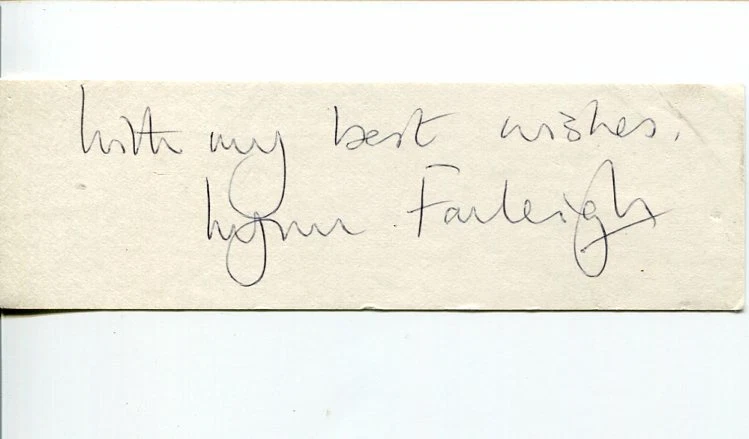 With my best wishes.
Lynn Farleigh